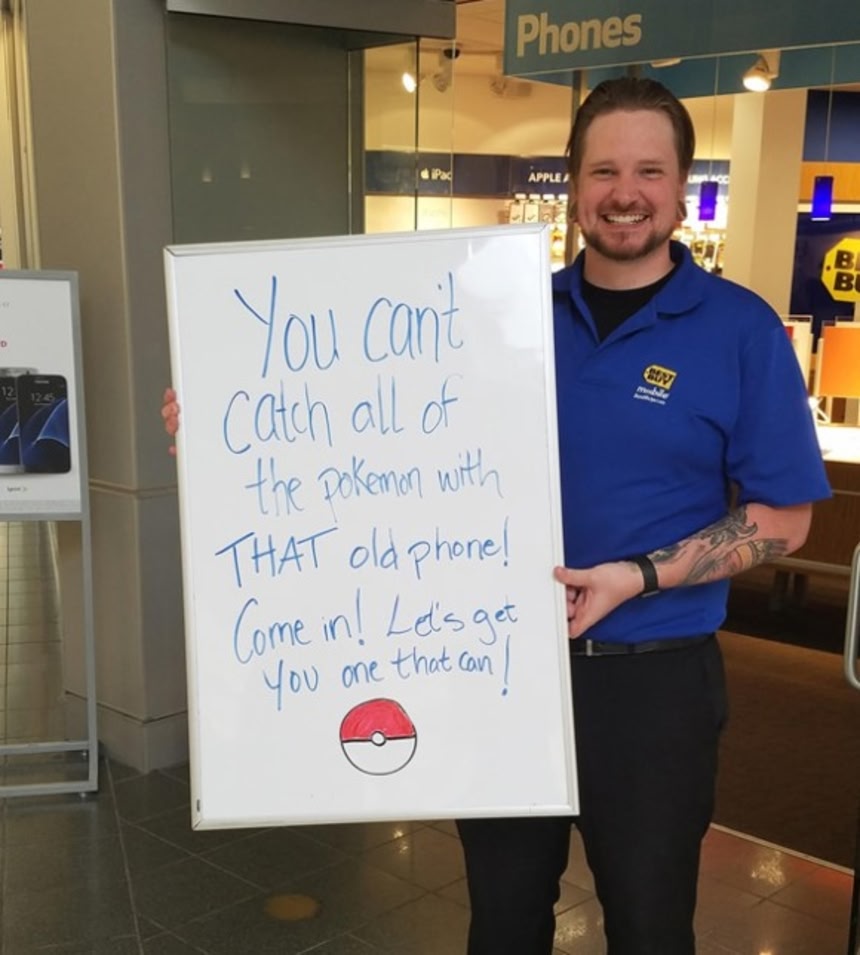 Phones
iPad
APPLE A
You can't
catch all of
the pokemon with
THAT old phone!
Come in! Let's get
you one that can!
BEST
BUY
mobile
12:45
12